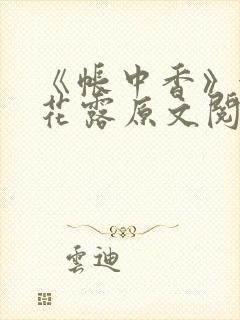 《帐中香》
花露原文阅
雲迪